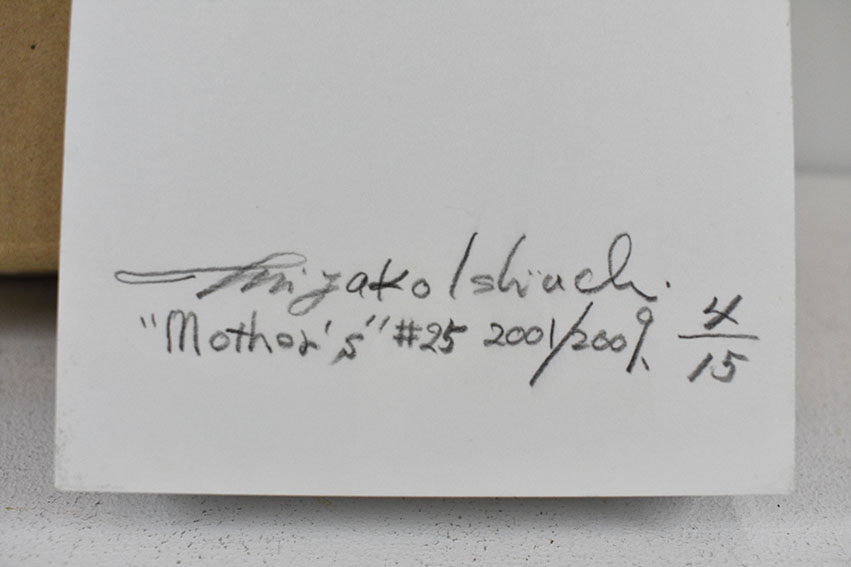 Miyako Ishiuch.
"Mother's" #25 2001/2009. 4/15